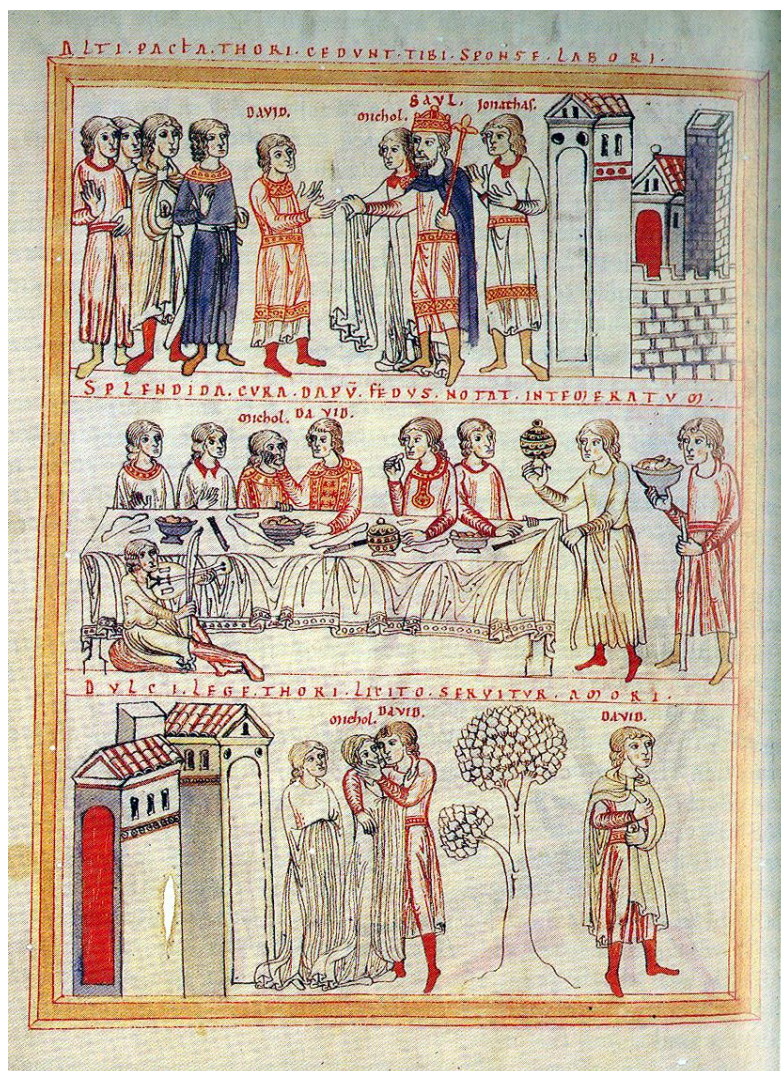 ALTI · PACTA · THORI · CEDUNT · TIBI · SPONSE · LABORI ·
DAVID.
michol. SAUL. Jonathas.
SPLENDIDA · CURA · DAPU̅ · FEDUS · NOTAT · INTEMERATUM ·
michol. DAVID.
DULCI · LEGE · THORI · LICITO · SERVITUR · AMORI ·
michol. DAVID.
DAVID.